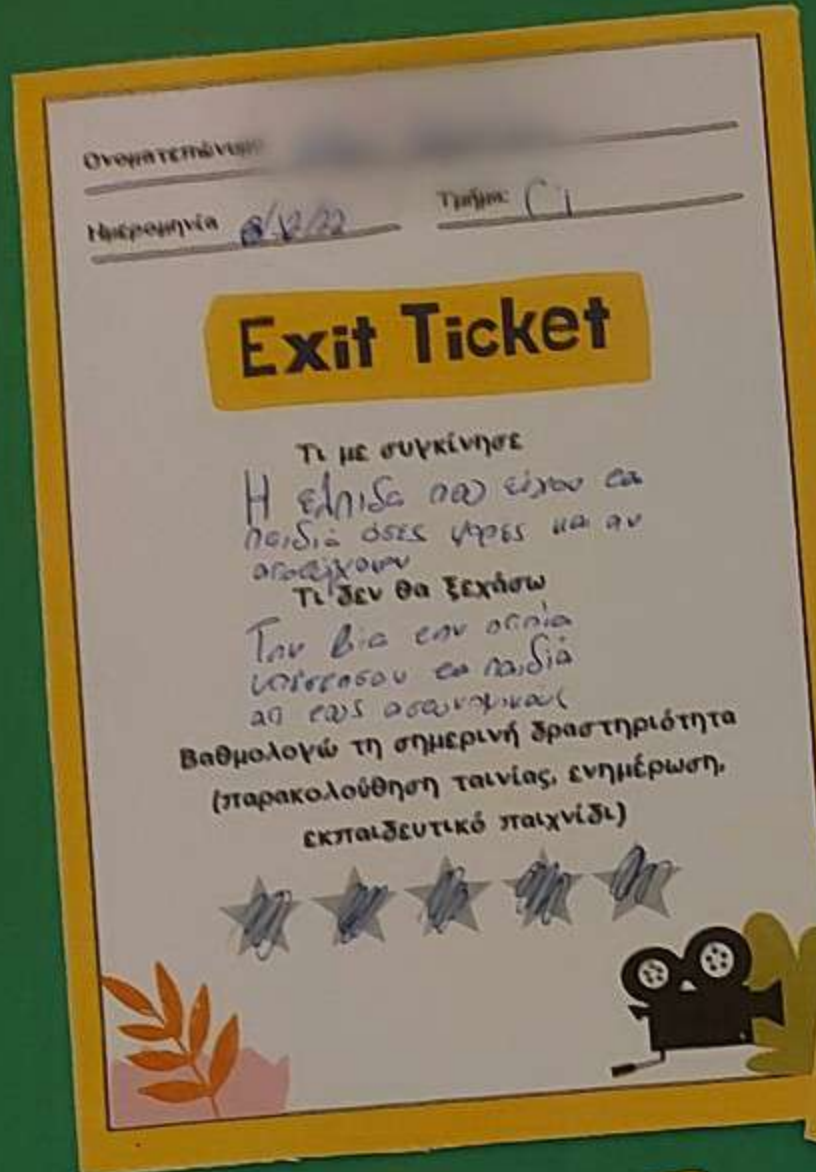 Ονοματεπώνυμο:
Ημερομηνία 8/12/22 Τμήμα: Γ1
Exit Ticket
Τι με συγκίνησε
Η ελπίδα που είχαν τα
παιδιά όσες φορές και αν
Τι δεν θα ξεχάσω
Την βία την οποία
υπέστησαν τα παιδιά
απ τους αστυνομικούς
Βαθμολογώ τη σημερινή δραστηριότητα
(παρακολούθηση ταινίας, ενημέρωση,
εκπαιδευτικό παιχνίδι)